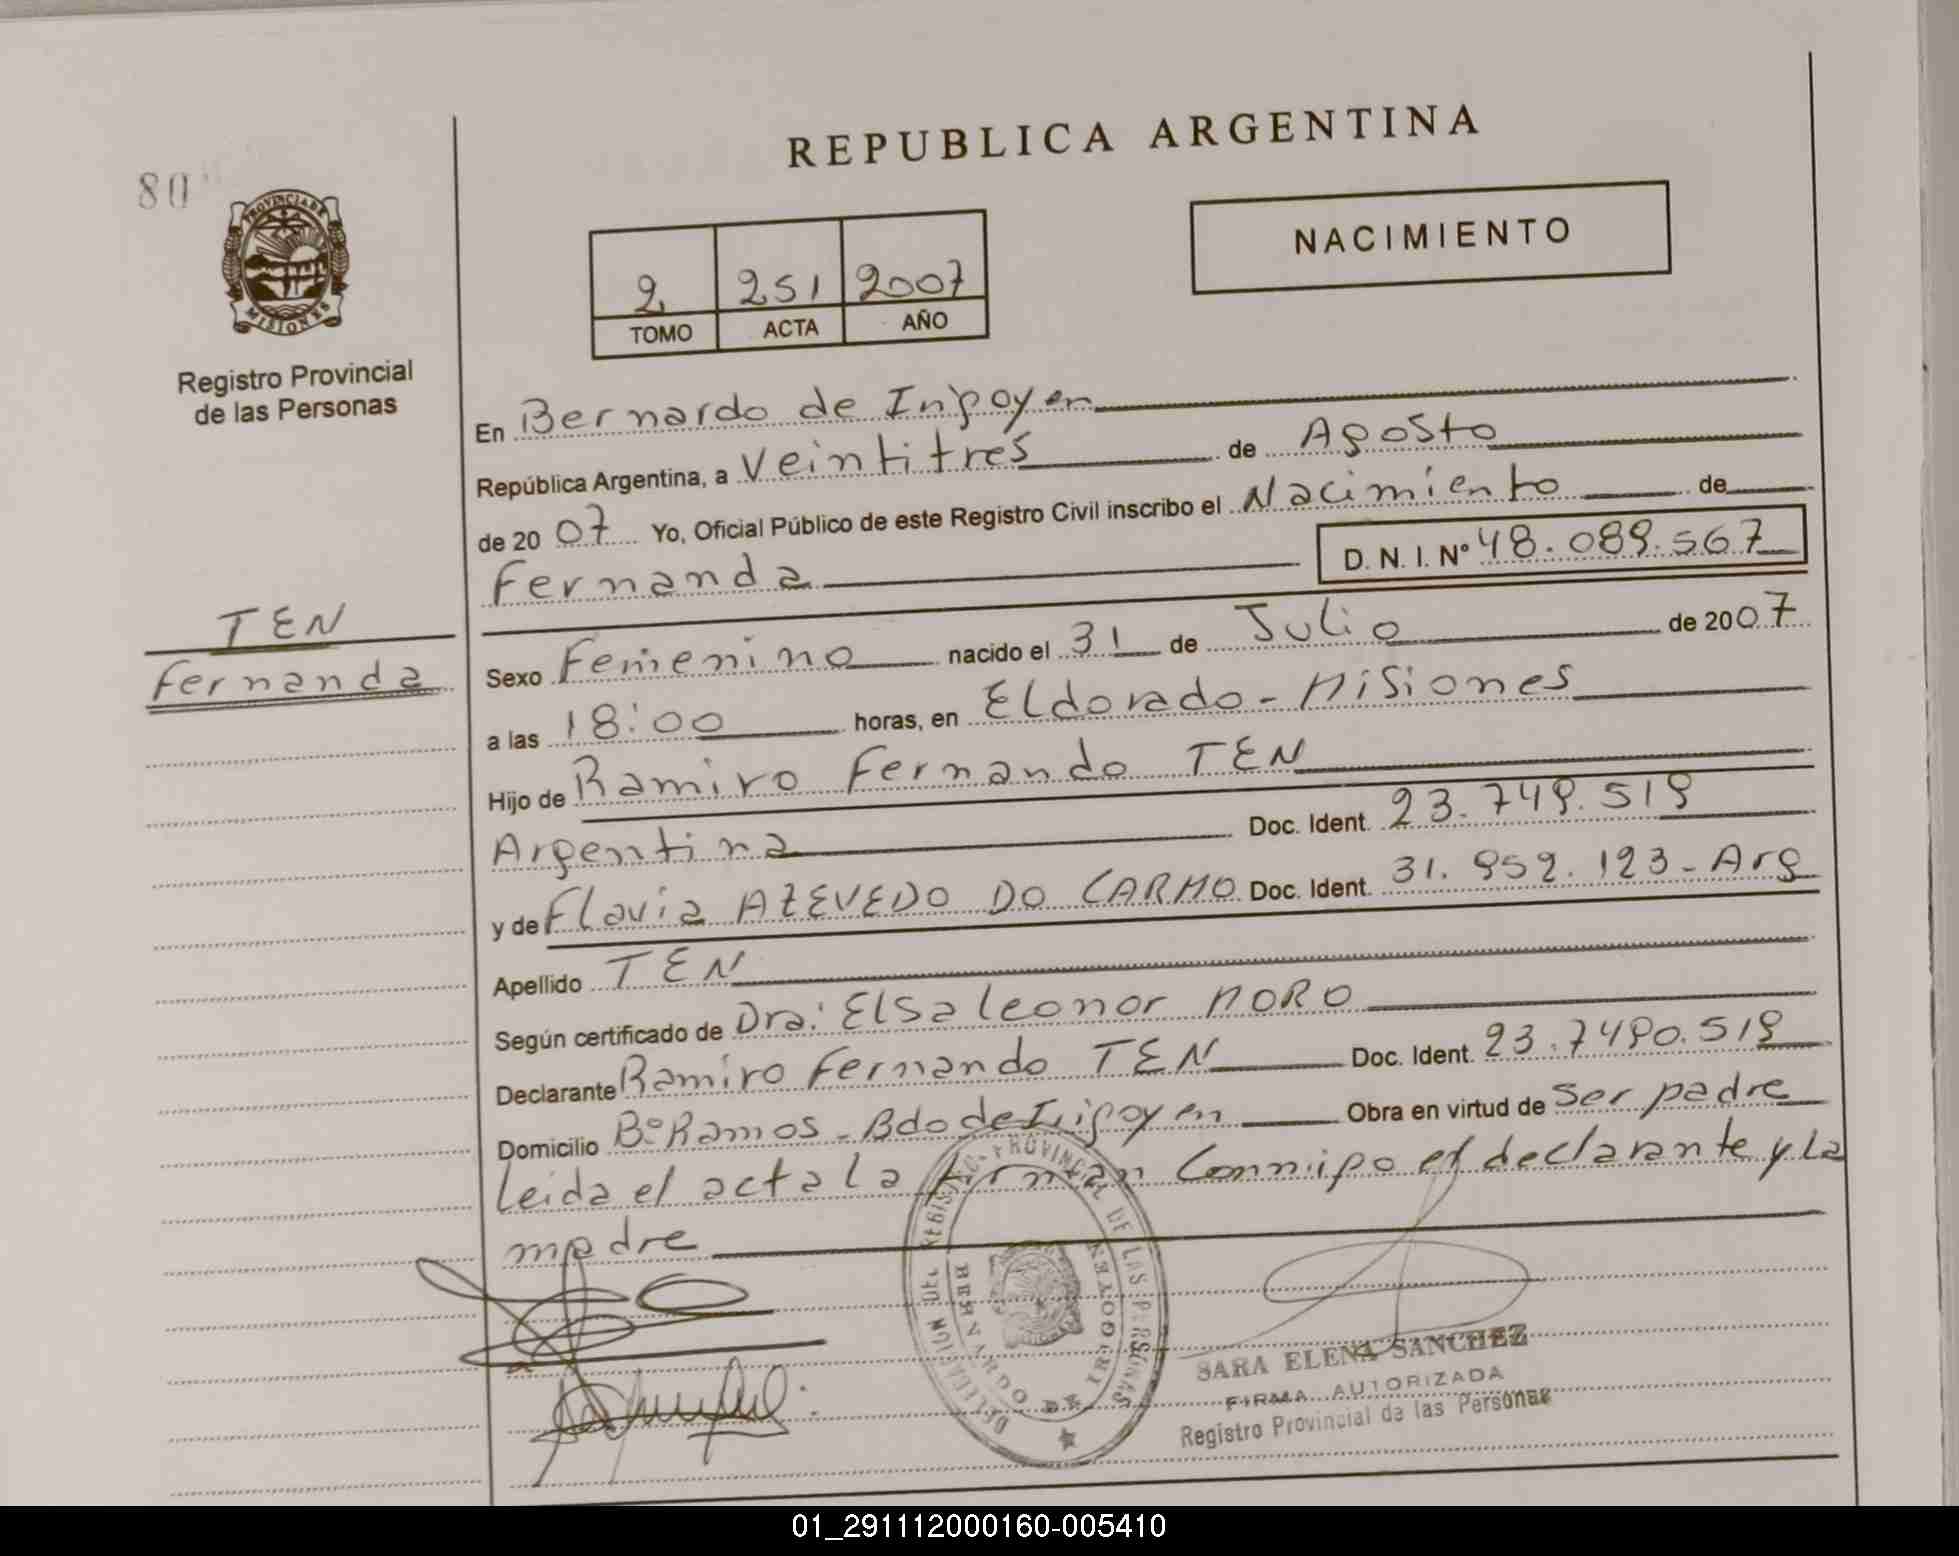 REPUBLICA ARGENTINA
80
PROVINCIA DE
MISIONES
Registro Provincial
de las Personas
2 251 2007
TOMO ACTA AÑO
NACIMIENTO
En Bernardo de Irigoyen
República Argentina, a Veintitres de Agosto
de 2007 Yo, Oficial Público de este Registro Civil inscribo el Nacimiento de
Fernanda D. N. I. Nº 48.089.567
TEN
Fernanda
Sexo Femenino nacido el 31 de Julio de 2007
a las 18:00 horas, en Eldorado - Misiones
Hijo de Ramiro Fernando TEN
Argentina Doc. Ident. 23.749.519
y de Flavia AZEVEDO DO CARMO Doc. Ident. 31.952.123 - Arg
Apellido TEN
Según certificado de Dra: Elsa leonor MORO
Declarante Ramiro Fernando TEN Doc. Ident. 23.7490.519
Domicilio Bº Ramos - Bdo de Irigoyen Obra en virtud de ser padre
leida el acta la firman Conmigo el declarante y la
madre
DELEGACION DEL REGISTRO PROVINCIAL DE LAS PERSONAS
BERNARDO DE IRIGOYEN
SARA ELENA SANCHEZ
FIRMA AUTORIZADA
Registro Provincial de las Personas
01_291112000160-005410